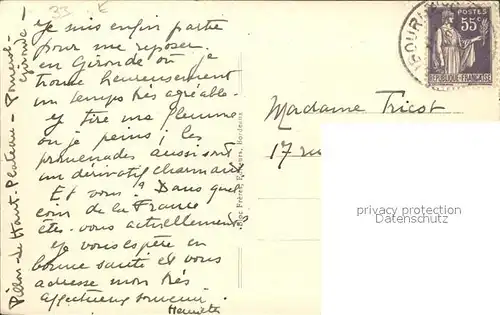 je suis enfin partie
pour me reposer
en Gironde où je
trouve heureusement
un temps très agréable.
je tire ma flemme
ou je peins ; les
promenades aussi sont
un dérivatif charmant
Et vous ? Dans quel
coin de la France
êtes-vous actuellement
je vous espère en
bonne santé et vous
adresse mon très
affectueux souvenir.
Henriette
Le Haut-Plateau - 
Gironde -
Bordeaux
POSTES
55c
REPUBLIQUE FRANÇAISE
Madame Tricot
17 rue
privacy protection